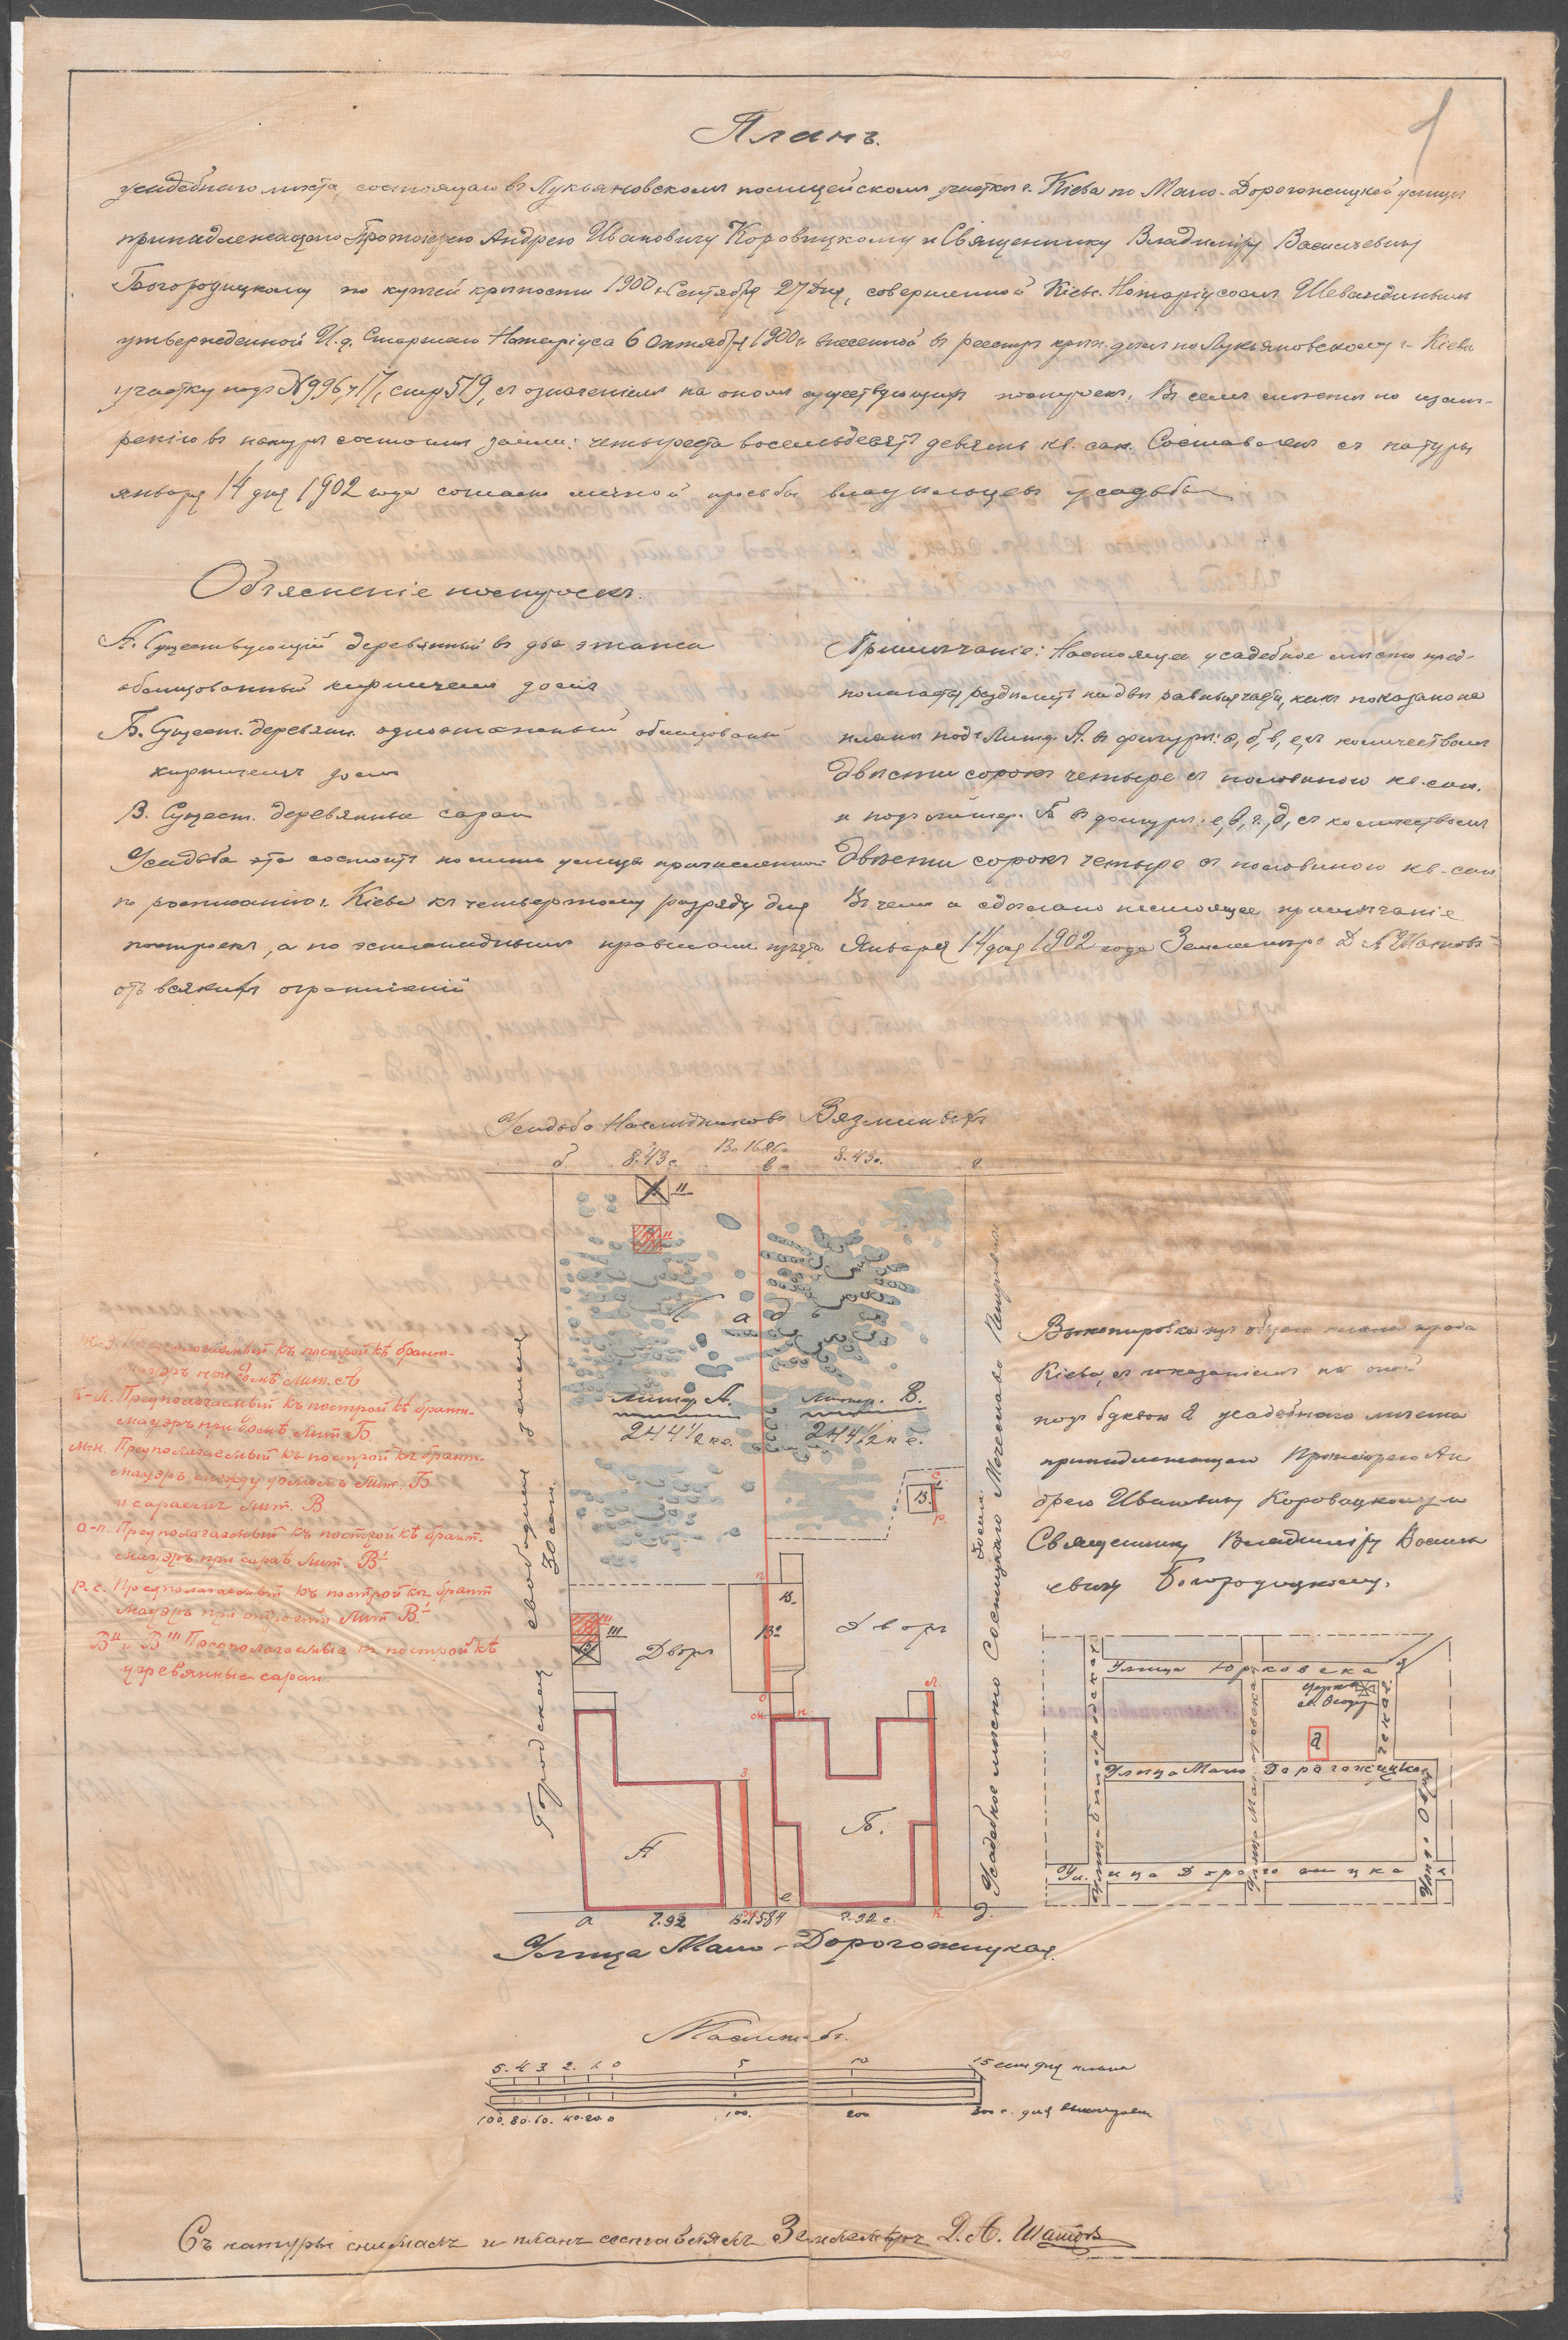 Планъ.
усадебнаго мѣста, состоящаго въ Лукьяновскомъ полицейскомъ участкѣ г. Кіева по Мало-Дорогожицкой улицѣ
принадлежащаго Протоіерею Андрею Ивановичу Коровицкому и Священнику Владиміру Васильевичу
Богородицкому по купчей крѣпости 1900 г. Сентября 27 дня, совершенной Кіевс. Нотаріусомъ
утвержденной И. д. Старшаго Нотаріуса 6 Октября 1900 г. внесенной въ реестръ крѣп. дѣлъ по Лукьяновскому г. Кіева
участку подъ № 996, стр 519, съ означеніемъ на ономъ существующихъ построекъ. Въ семъ мѣстѣ по измѣ-
ренію въ натурѣ состоитъ земли: четыреста восемьдесятъ девять кв. саж. Составленъ съ натуры
января 14 дня 1902 года согласно личной просьбы владѣльцевъ усадьбы
Объясненіе построекъ.
А. Существующій деревянный въ два этажа
облицованный кирпичемъ домъ
Б. Сущест. деревян. одноэтажный облицованный
кирпичемъ домъ
В. Сущест. деревянные сараи
Усадьба эта состоитъ по линіи улицы причисленной
по росписанію г. Кіева къ четвертому разряду для
построекъ, а по эспланаднымъ правиламъ изъята
отъ всякихъ ограниченій
Примѣчаніе: Настоящее усадебное мѣсто пред-
полагается раздѣлить на двѣ равныя части, какъ показано на
планѣ подъ Литер. А. въ фигурѣ: а, б, в, е, съ количествомъ
Двѣсти сорокъ четыре съ половиною кв. саж.
и подъ литер. Б въ фигурѣ: е, в, г, д, съ количествомъ
Двѣсти сорокъ четыре съ половиною кв. саж
Въ чемъ и сдѣлано настоящее примѣчаніе
Января 14 дня 1902 года Землемѣръ Д. А. Шатовъ
Усадьба Наслѣдниковъ Вязминыхъ
б. 8.43 с. в 8.43 с. г.
II
II
Садъ
литер А. литер. Б.
244 1/2 кс. 244 1/2 кс.
Городская свободная земля
30 саж.
Усадебное мѣсто Сосницкаго Мечеслава Петровича
с
В.
р.
п
В.
III
III
Дворъ
Дворъ
о
м. н. л.
з
А
Б.
а 7.92 е 7.92 с. к. д.
Улица Мало-Дорогожицкая.
Ж-з. Предполагаемый къ постройкѣ брант-
мауэръ при домѣ лит.
К-л. Предполагаемый къ постройкѣ брант-
мауэръ при домѣ Лит Б.
м-н. Предполагаемый къ постройкѣ брант-
мауэръ между домомъ Лит. Б
и сараемъ лит. В.
о-п. Предполагаемый къ постройкѣ брант.
мауэръ при сараѣ Лит. В
р. с. Предполагаемый къ постройкѣ брант
мауэръ при Лит В
ВII и ВIII Предполагаемые къ постройкѣ
деревянные сараи.
Выкопировка изъ общаго плана города
Кіева, съ показаніемъ на оной
подъ буквою а усадебнаго мѣста
принадлежащаго Протоіерею Ан
дрею Ивановичу Коровицкому и
Священнику Владиміру Василь
евичу Богородицкому.
Улица Юрковска я
Церковь
св. Ѳеодора
а
Улица Мало Дорогожицкая
Улица Дорогожицкая
Масштабъ.
5. 4. 3 2. 1. 0 5 10. 15 саж для плана
100. 80. 60. 40. 20. 0 100. 200 300 с. для выкопировки
Съ натуры снималъ и планъ составлялъ Землемѣръ Д. А. Шатовъ
1